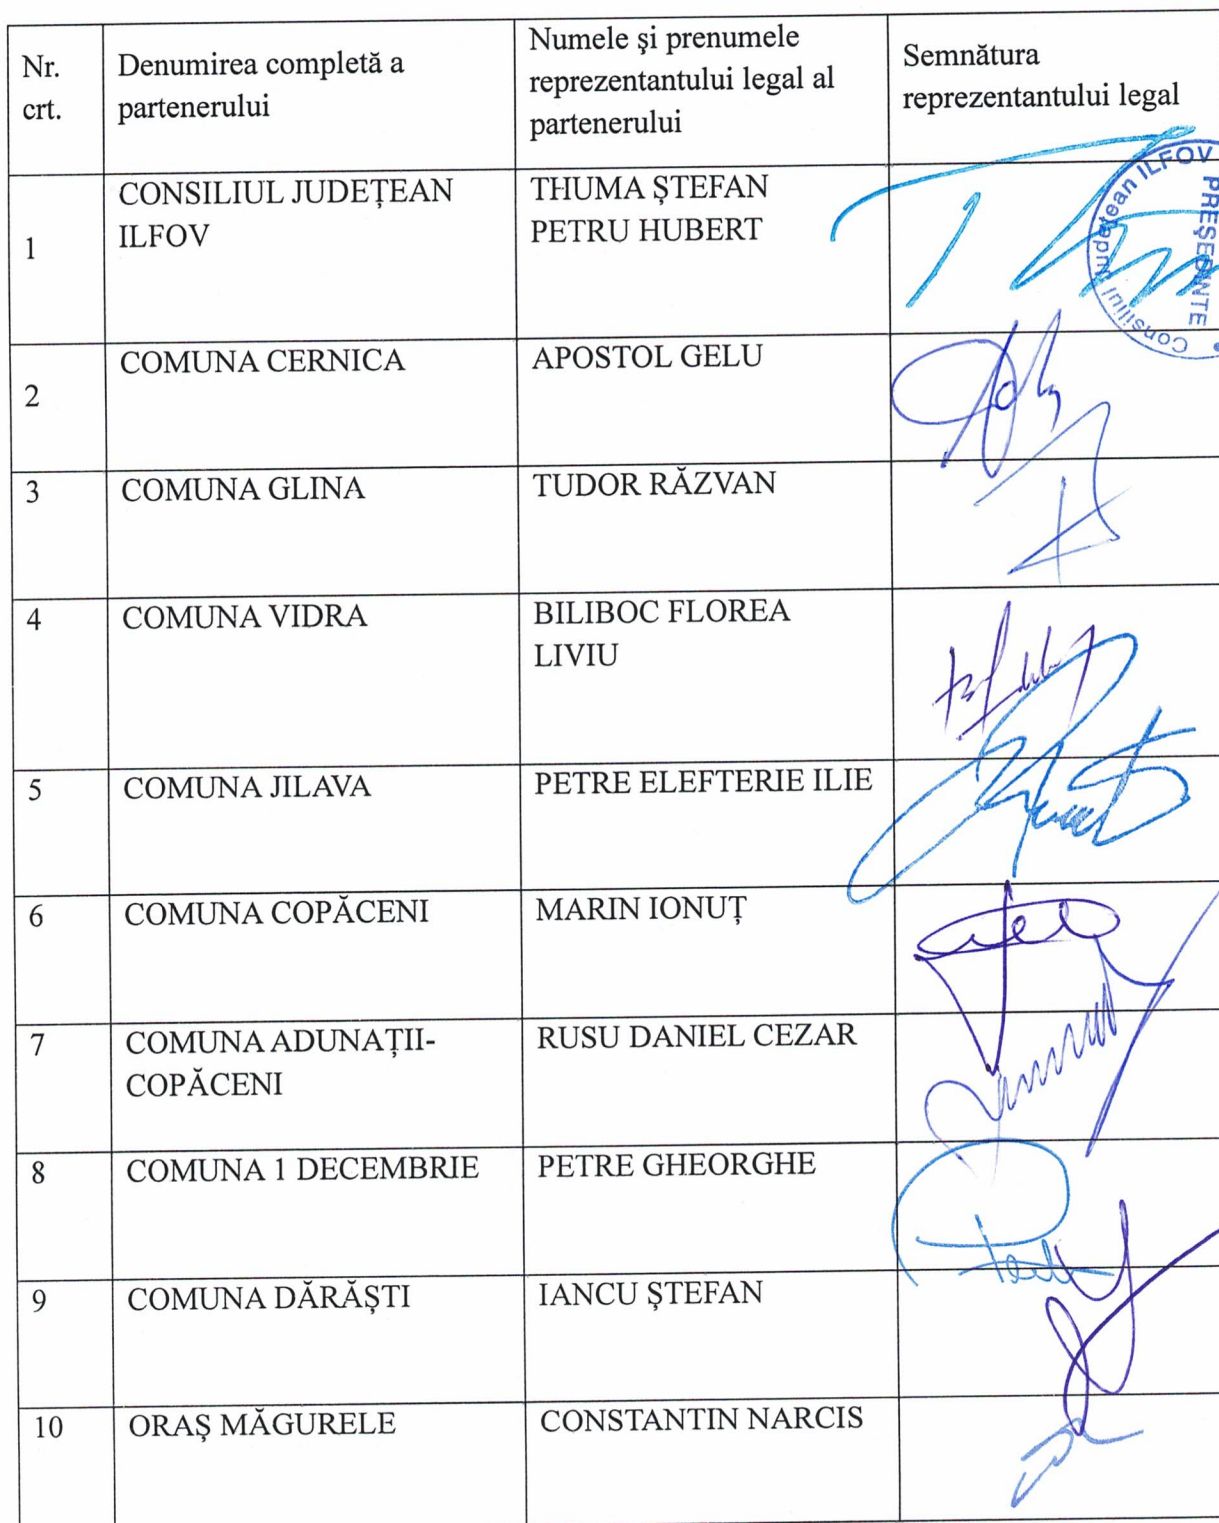 Nr.
crt.
Denumirea completă a
partenerului
Numele și prenumele
reprezentantului legal al
partenerului
Semnătura
reprezentantului legal
1
CONSILIUL JUDEȚEAN
ILFOV
THUMA ȘTEFAN
PETRU HUBERT
Consiliul Județean ILFOV
PREȘEDINTE
2
COMUNA CERNICA
APOSTOL GELU
3
COMUNA GLINA
TUDOR RĂZVAN
4
COMUNA VIDRA
BILIBOC FLOREA
LIVIU
5
COMUNA JILAVA
PETRE ELEFTERIE ILIE
6
COMUNA COPĂCENI
MARIN IONUȚ
7
COMUNA ADUNAȚII-
COPĂCENI
RUSU DANIEL CEZAR
8
COMUNA 1 DECEMBRIE
PETRE GHEORGHE
9
COMUNA DĂRĂȘTI
IANCU ȘTEFAN
10
ORAȘ MĂGURELE
CONSTANTIN NARCIS